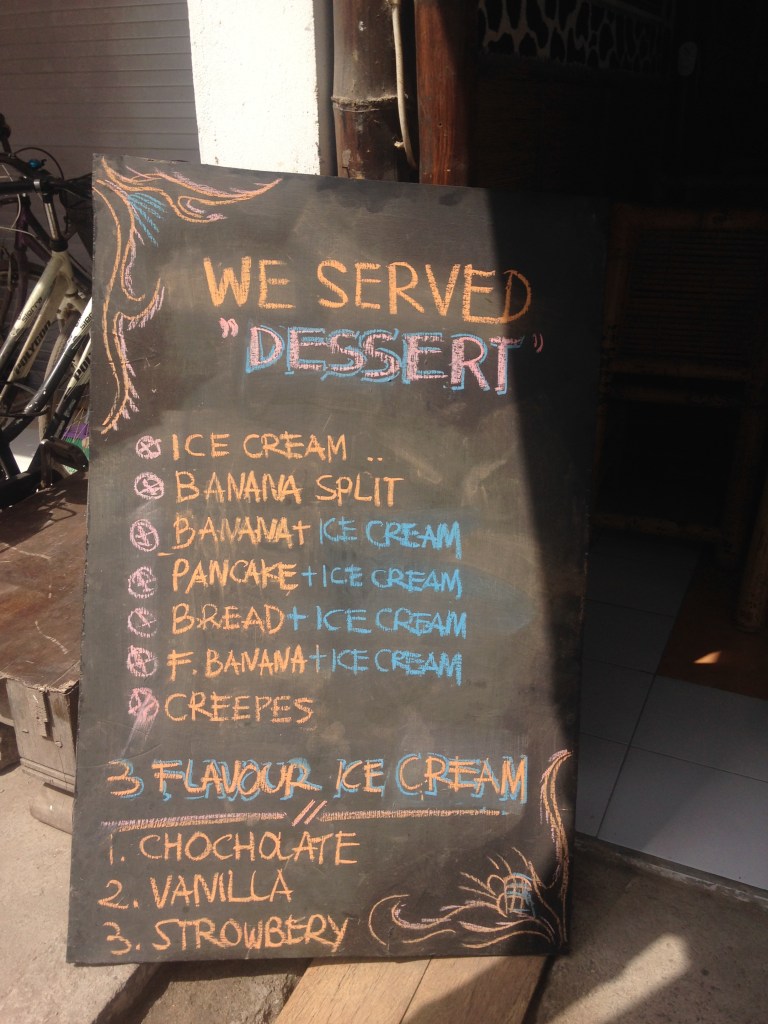 WE SERVED
"DESSERT"
ICE CREAM ..
BANANA SPLIT
BANANA + ICE CREAM
PANCAKE + ICE CREAM
BREAD + ICE CREAM
F. BANANA + ICE CREAM
CREEPES
3 FLAVOUR ICE CREAM
1. CHOCHOLATE
2. VANILLA
3. STROWBERY
POLYGON